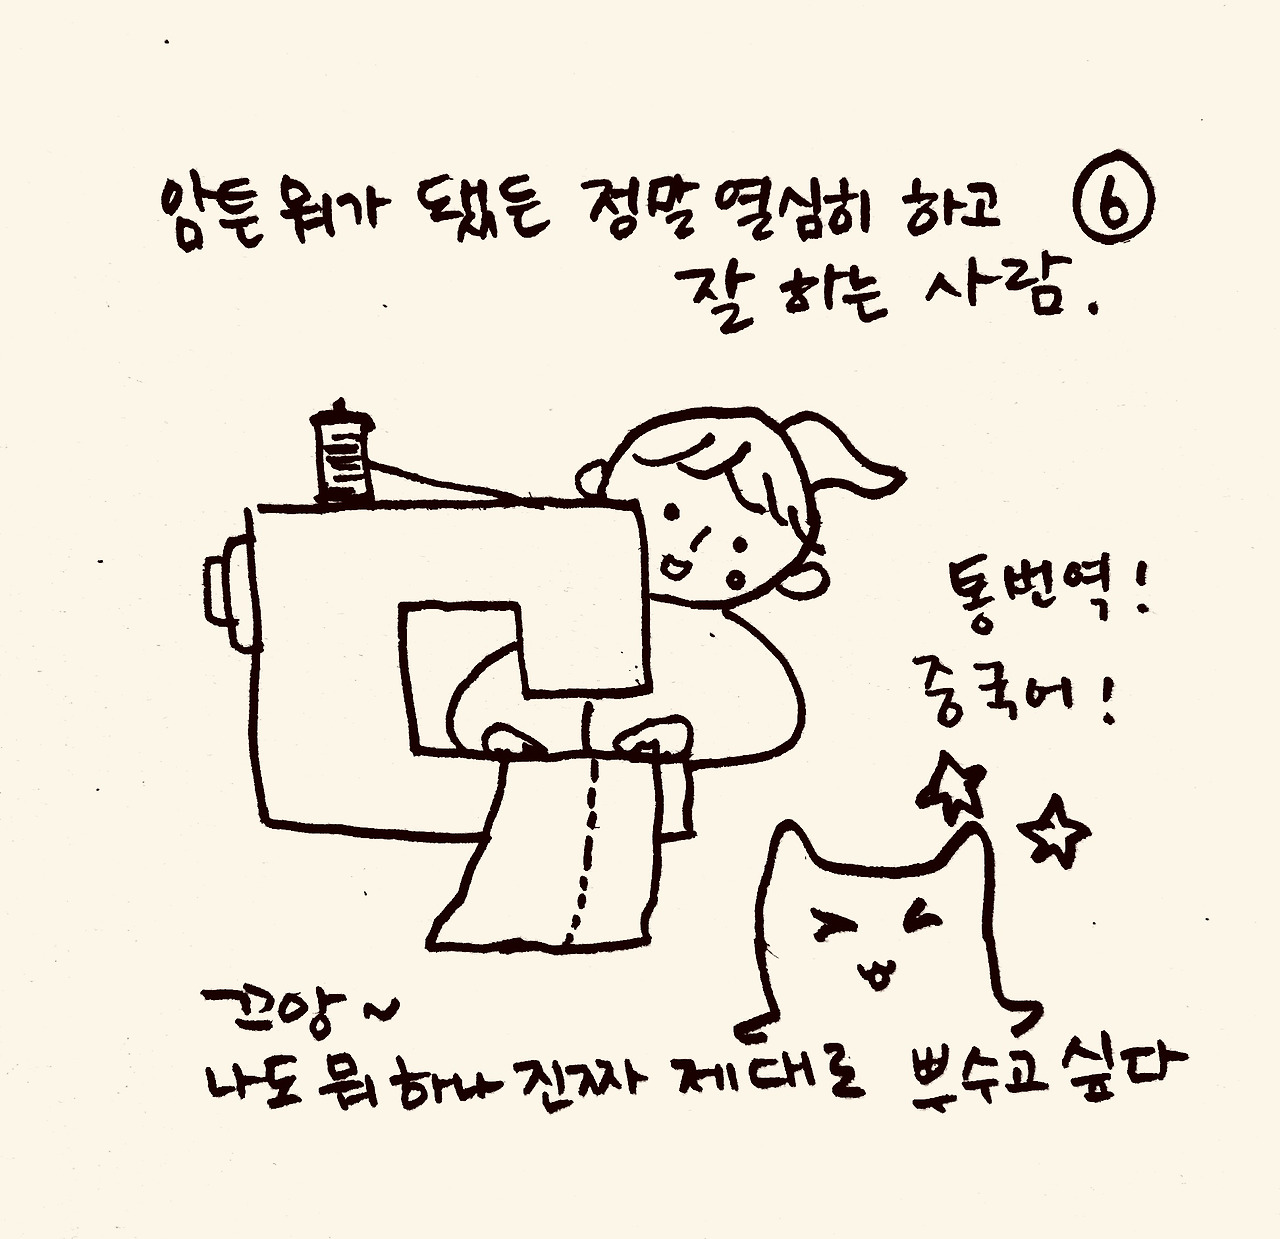 암튼 뭐가 됐든 정말 열심히 하고 ⑥
잘 하는 사람.
통번역!
중국어!
끄앙~
나도 뭐 하나 진짜 제대로 뿌수고 싶다